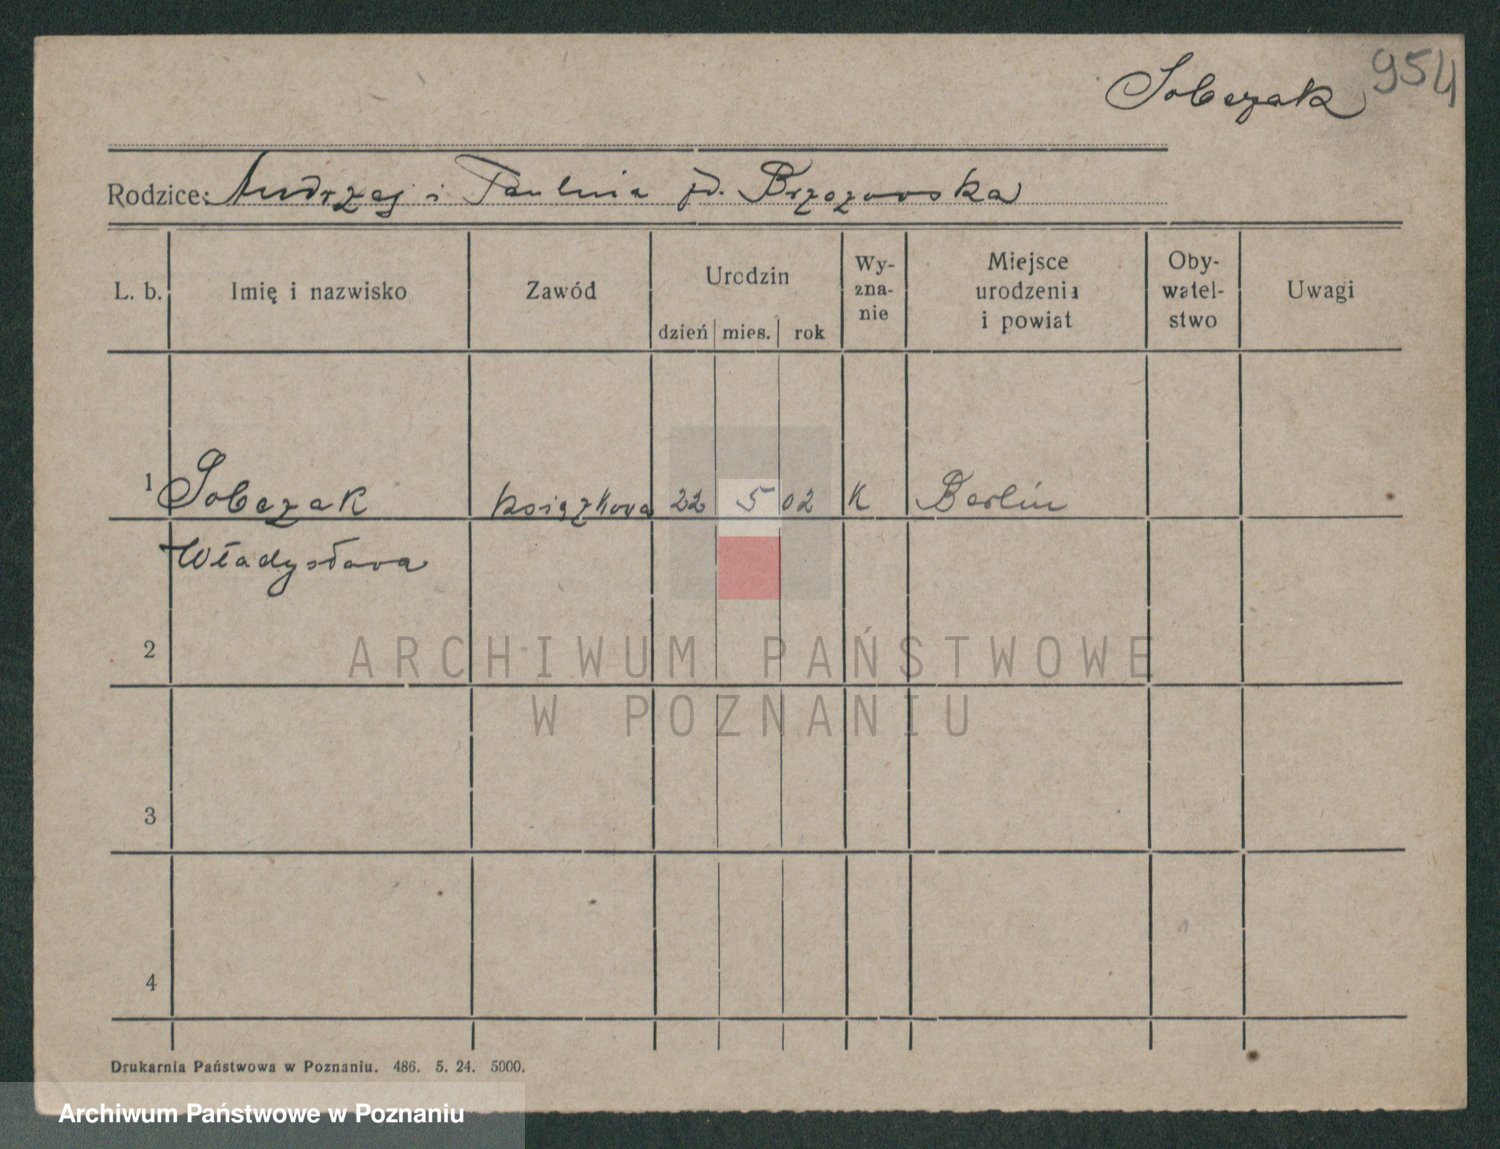 Sobczak 954
Rodzice: Andrzej i Paulina zd. Brzozowska
L. b. Imię i nazwisko Zawód Urodzin dzień mies. rok Wy-zna-nie Miejsce urodzenia i powiat Oby-watel-stwo Uwagi
1 Sobczak książkowa 22 5 02 K Berlin
Władysława
2
ARCHIWUM PAŃSTWOWE
W POZNANIU
3
4
Drukarnia Państwowa w Poznaniu. 486. 5. 24. 5000.
Archiwum Państwowe w Poznaniu